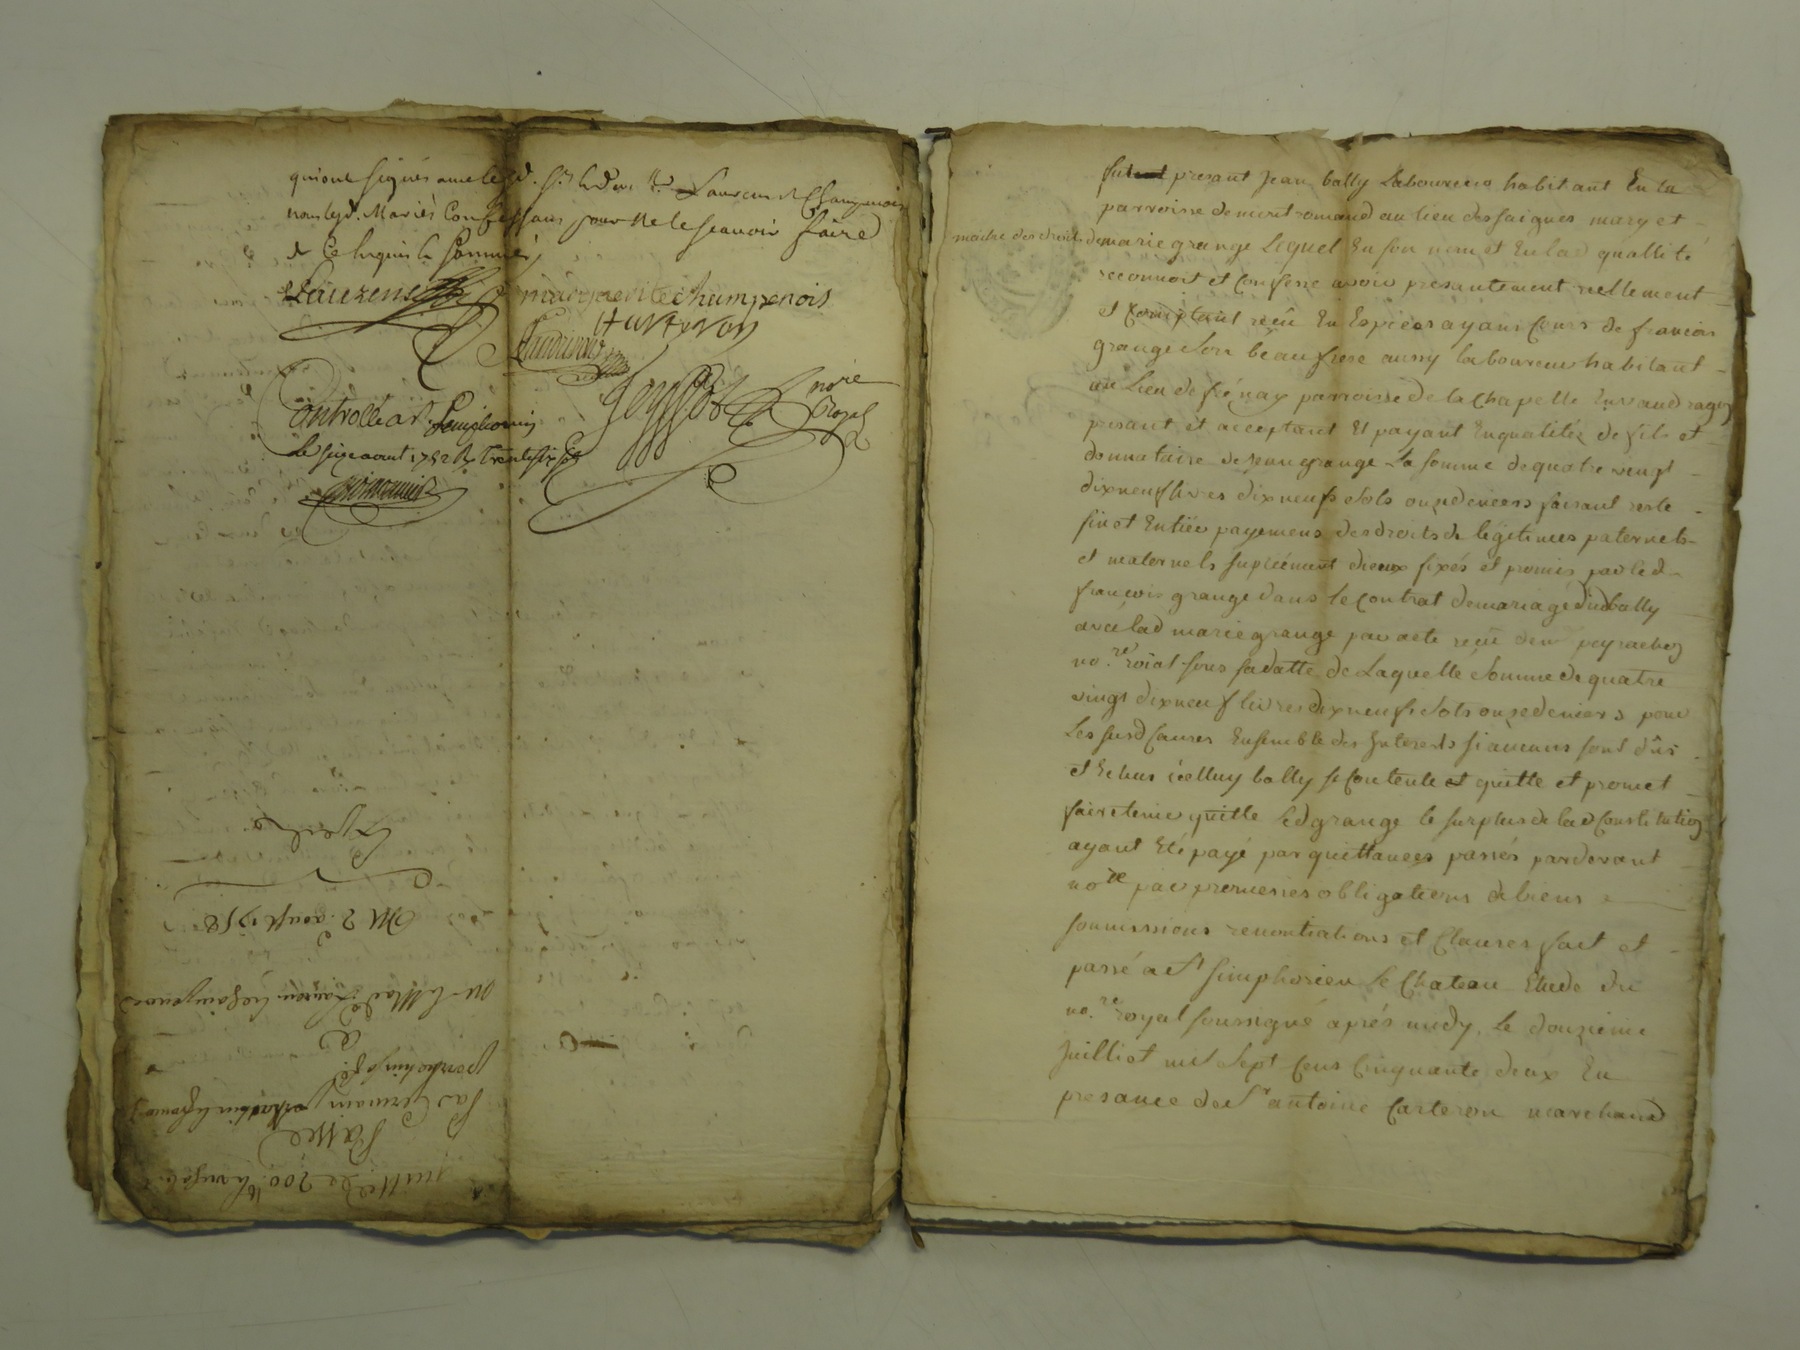 qui ont signés avec led. Sr Laurens et Champenois
non led. Mariés Confessans pour ne le scavoir faire
de Ce Enquis & Sommés
Laurens
margueritechampenois
notre
Royal
Controllé a St. Simphorien
Le six aout 1752 R. Trente six s.
Expedié
Du 2 aoust 1758
quitte de 200 lt
Passée
Par Germain
a
fut presant Jean bally Laboureur habitant En la
parroisse de montromand au lieu des faigues mary et
maitre des droits de marie grange Lequel En son nom et En lad quallité
reconnoit et Confesse avoir presantement reellement
et Comptant reçû En Espices ayans Cours de francois
grange son beaufrere aussy laboureur habitant
au Lieu de frénay parroisse de la chapelle En vaudragon
presant et acceptant Et payant En qualitéz de fils et
donnataire de Jean grange La somme de quatre vingt
dixneuf livres dixneuf sols onze deniers faisant reste
fin et Entier payement des droits de légitimes paternels
et maternels suplément diceux fixés et promis par led
françois grange dans le Contrat de mariage dud bally
avec lad marie grange par acte reçû de me peyrachon
no.re roial sous sa datte de Laquelle somme de quatre
vingt dixneuf livres dixneuf sols onze deniers pour
Les susd Causes Ensemble des Interests si aucuns sont dûs
et Echus icelluy bally se Contente et quitte et promet
faire tenir quitte Led grange le surplus de lad Constitution
ayant Eté payé par quittances passés pardevant
no re par promesses obligations de biens
soumissions renontiations et Clauses fait et
passé a St Simphorien Le Chateau Etude du
no.re royal soussigné aprés midy, Le douzieme
Juilliet mil sept Cens Cinquante deux En
presance de Sr antoine Carteron marchand